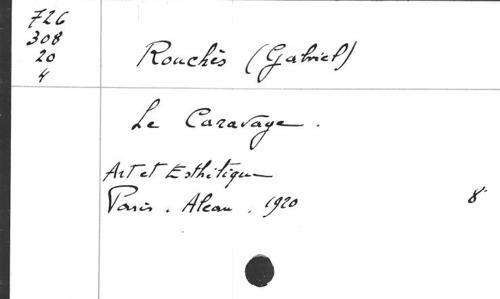 726
308
20
4
Rouchès (Gabriel)
Le Caravage.
Art et Esthétique
Paris. Alcan. 1920 8°